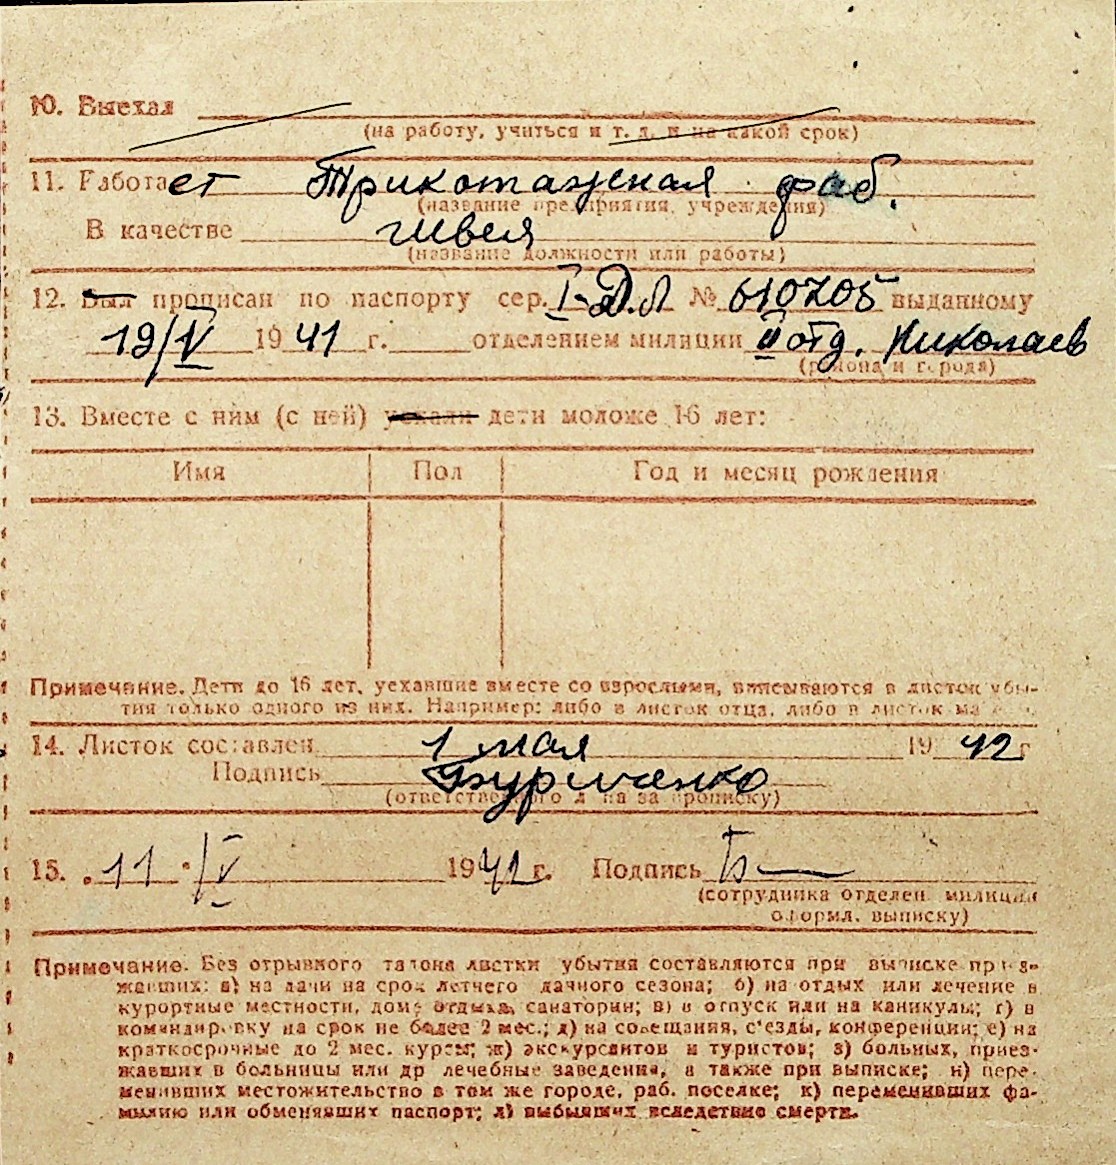 10. Выехал
(на работу, учиться и т. д. и на какой срок)
11. Работает Трикотажная фаб.
(название предприятия, учреждения)
В качестве швея
(название должности или работы)
12. Был прописан по паспорту сер. I-ДЛ № 610705 выданному
19/IV 1941 г. отделением милиции II отд. Николаев
(района и города)
13. Вместе с ним (с ней) уехали дети моложе 16 лет:
Имя Пол Год и месяц рождения
Примечание. Дети до 16 лет, уехавшие вместе со взрослыми, вписываются в листок убы-
тия только одного из них. Например: либо в листок отца, либо в листок
14. Листок составлен 1 мая 1942 г
Подпись
(ответственного л на за прописку)
15. 11 IV 1942 г. Подпись
(сотрудника отделен. милиции
оформл. выписку)
Примечание. Без отрывного талона листки убытия составляются при выписке приез-
жавших: а) на дачи на срок летнего дачного сезона; б) на отдых или лечение в
курортные местности, дома отдыха, санатории; в) в отпуск или на каникулы; г) в
командировку на срок не более 2 мес.; д) на совещания, с'езды, конференции; е) на
краткосрочные до 2 мес. курсы; ж) экскурсантов и туристов; з) больных, приез-
жавших в больницы или др лечебные заведения, а также при выписке; и) пере-
менивших местожительство в том же городе, раб. поселке; к) переменивших фа-
милию или обменявших паспорт; л) выбывших вследствие смерти.